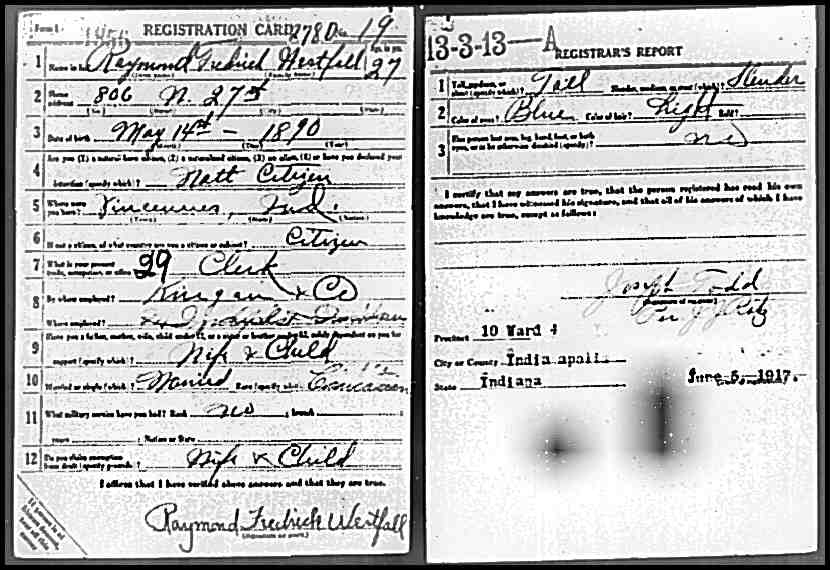 Form 1 1454 REGISTRATION CARD 2780 No. 19
1 Name in full Raymond Fredrick Westfall Age, in yrs. 27
(Given name) (Family name)
2 Home address 806 N. 27th
(No.) (Street) (City) (State)
3 Date of birth May 14th - 1890
(Month) (Day) (Year)
4 Are you (1) a natural-born citizen, (2) a naturalized citizen, (3) an alien, (4) or have you declared your
intention (specify which)? Natt Citizen
5 Where were you born? Vincennes, Ind.
(Town) (State) (Nation)
6 If not a citizen, of what country are you a citizen or subject? Citizen
7 What is your present trade, occupation, or office? 29 Clerk
8 By whom employed? Kingan & Co
Where employed?
9 Have you a father, mother, wife, child under 12, or a sister or brother under 12, solely dependent on you for
support (specify which)? Wife & Child
10 Married or single (which)? Married Race (specify which)? Caucasian
11 What military service have you had? Rank no ; branch ;
years ; Nation or State
12 Do you claim exemption from draft (specify grounds)? Wife & Child
I affirm that I have verified above answers and that they are true.
Raymond Fredrick Westfall
(Signature or mark)
13-3-13-A REGISTRAR'S REPORT
1 Tall, medium, or short (specify which)? Tall Slender, medium, or stout (which)? Slender
2 Color of eyes? Blue Color of hair? Light Bald?
3 Has person lost arm, leg, hand, foot, or both eyes, or is he otherwise disabled (specify)? no
I certify that my answers are true, that the person registered has read his own
answers, that I have witnessed his signature, and that all of his answers of which I have
knowledge are true, except as follows:
Joseph Todd
(Signature of registrar)
Precinct 10 Ward 4
City or County Indiaapolis
State Indiana June 5, 1917.
(Date of registration)